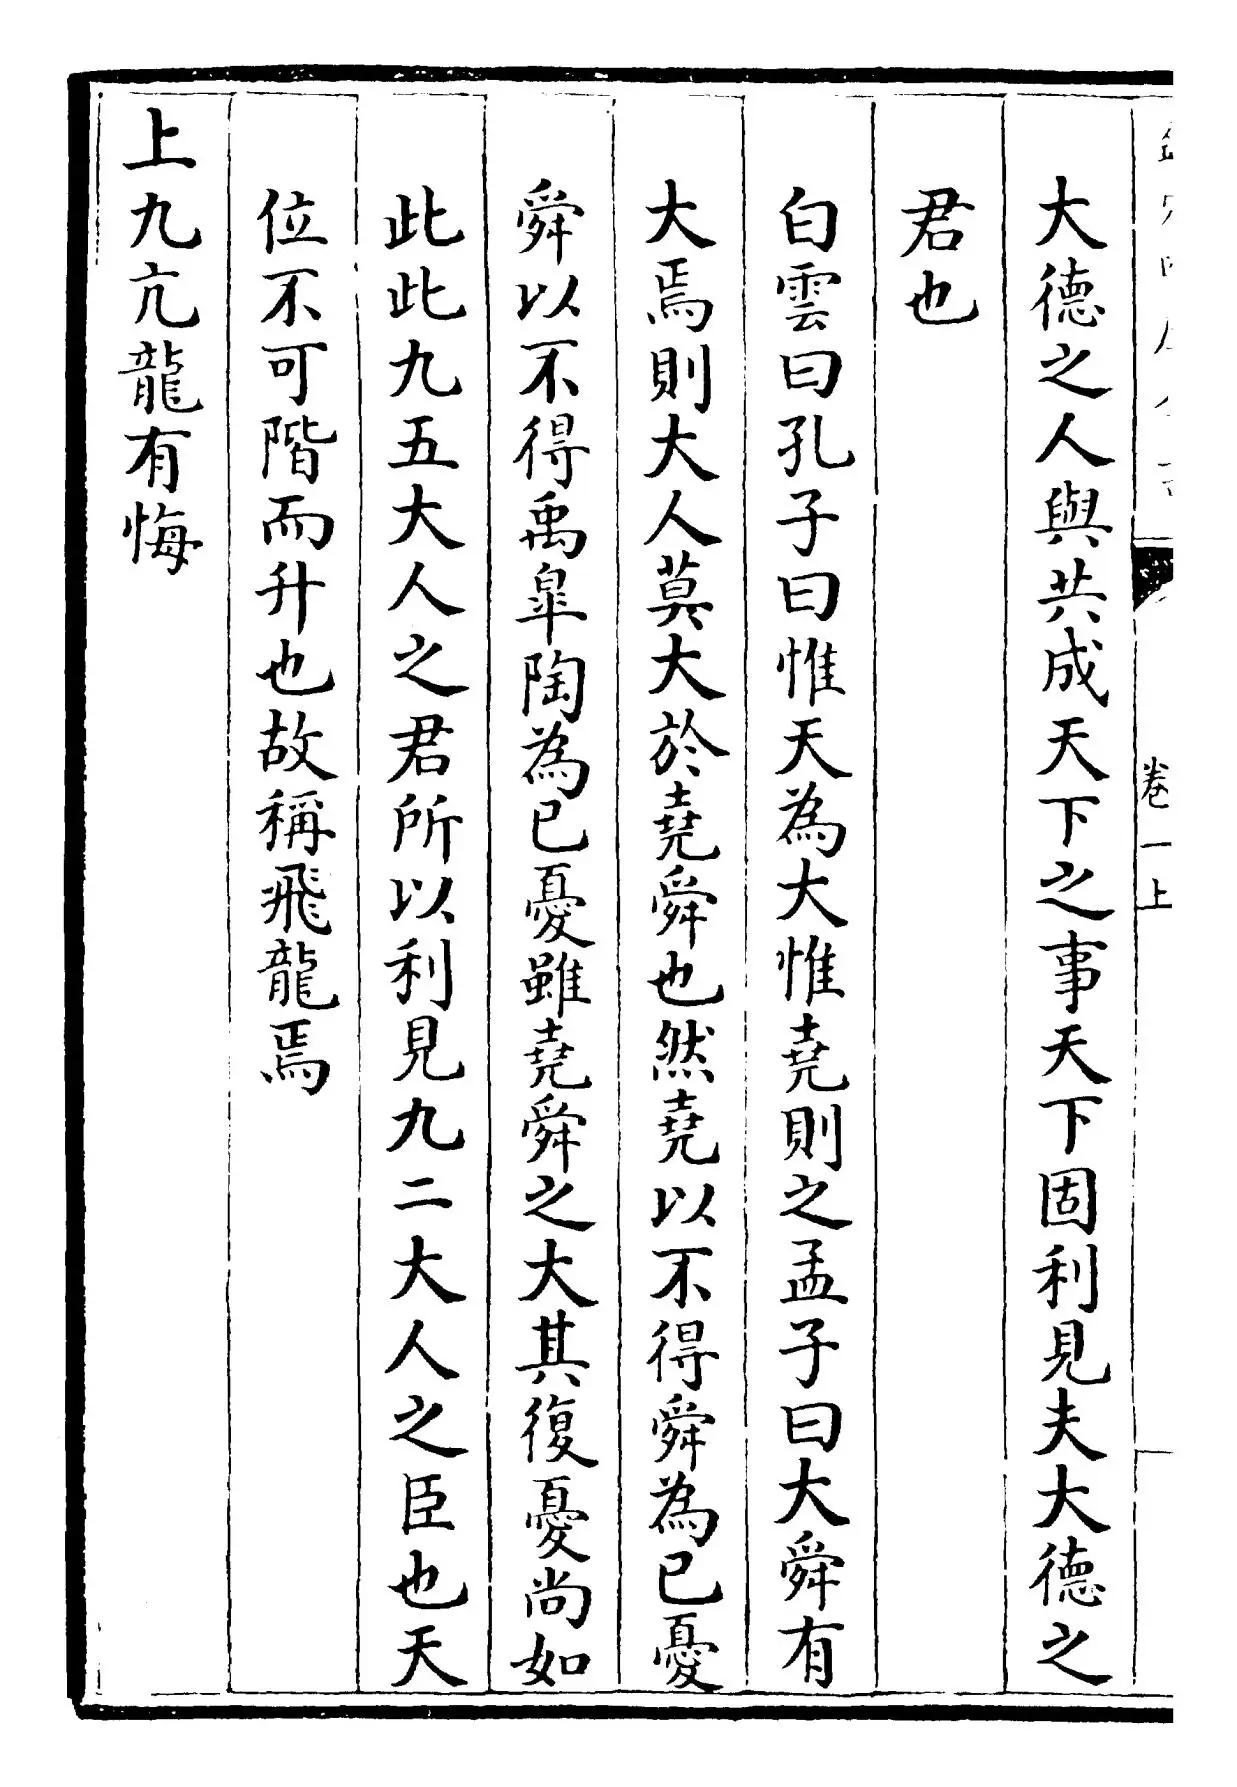 卷一上
大德之人與共成天下之事天下固利見夫大德之
君也
白雲曰孔子曰惟天為大惟堯則之孟子曰大舜有
大焉則大人莫大於堯舜也然堯以不得舜為已憂
舜以不得禹臯陶為已憂雖堯舜之大其復憂尚如
此此九五大人之君所以利見九二大人之臣也天
位不可階而升也故稱飛龍焉
上九亢龍有悔